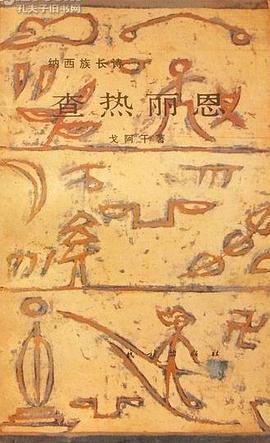 孔夫子旧书网
纳西族长诗
查热丽恩
戈阿干著